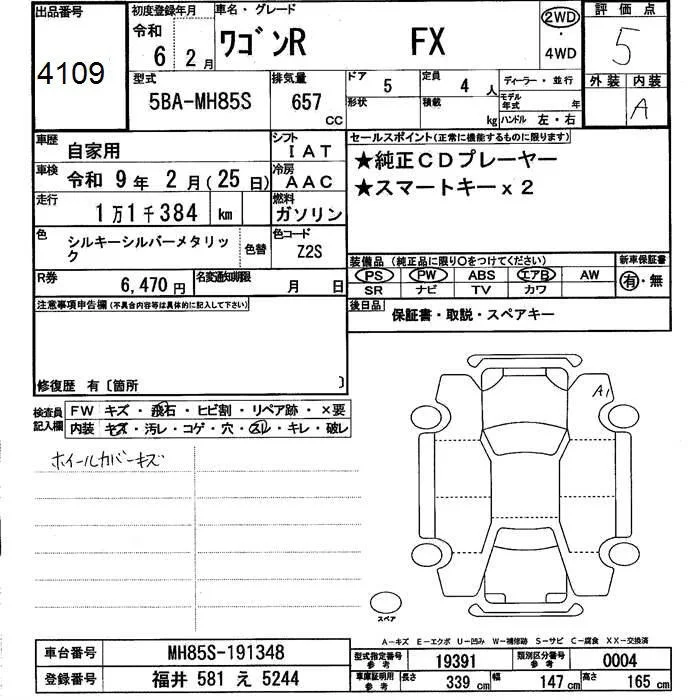 出品番号
4109
初度登録年月
令和
6 2月
車名・グレード
ワゴンR FX
2WD
・
4WD
評価点
5
外装 内装
A
型式
5BA-MH85S
排気量
657
CC
ドア
5
形状
定員
4 人
積載
kg
ディーラー・並行
モデル年式 年
ハンドル 左・右
車歴
自家用
シフト
IAT
車検
令和 9年 2月(25日)
冷房
AAC
走行
1万1千384 km
燃料
ガソリン
色
シルキーシルバーメタリック
色替
色コード
Z2S
R券
6,470円
名変通知期限
月 日
セールスポイント(正常に機能するものに限ります)
★純正CDプレーヤー
★スマートキーx2
装備品(純正品に限り○をつけてください)
PS PW ABS エアB AW
SR ナビ TV カワ
新車保証書
有・無
後日品
保証書・取説・スペアキー
注意事項申告欄(不具合内容等は具体的に記入して下さい)
修復歴 有〔箇所 〕
検査員記入欄
FW キズ・飛石・ヒビ割・リペア跡・×要
内装 キズ・汚レ・コゲ・穴・スレ・キレ・破レ
ホイールカバーキズ
A1
スペア
A-キズ E-エクボ U-凹み W-補修跡 S-サビ C-腐食 XX-交換済
車台番号 MH85S-191348
登録番号 福井 581 え 5244
型式指定番号 参考 19391
類別区分番号 参考 0004
車庫証明用 参考 長さ 339 cm 幅 147 cm 高さ 165 cm